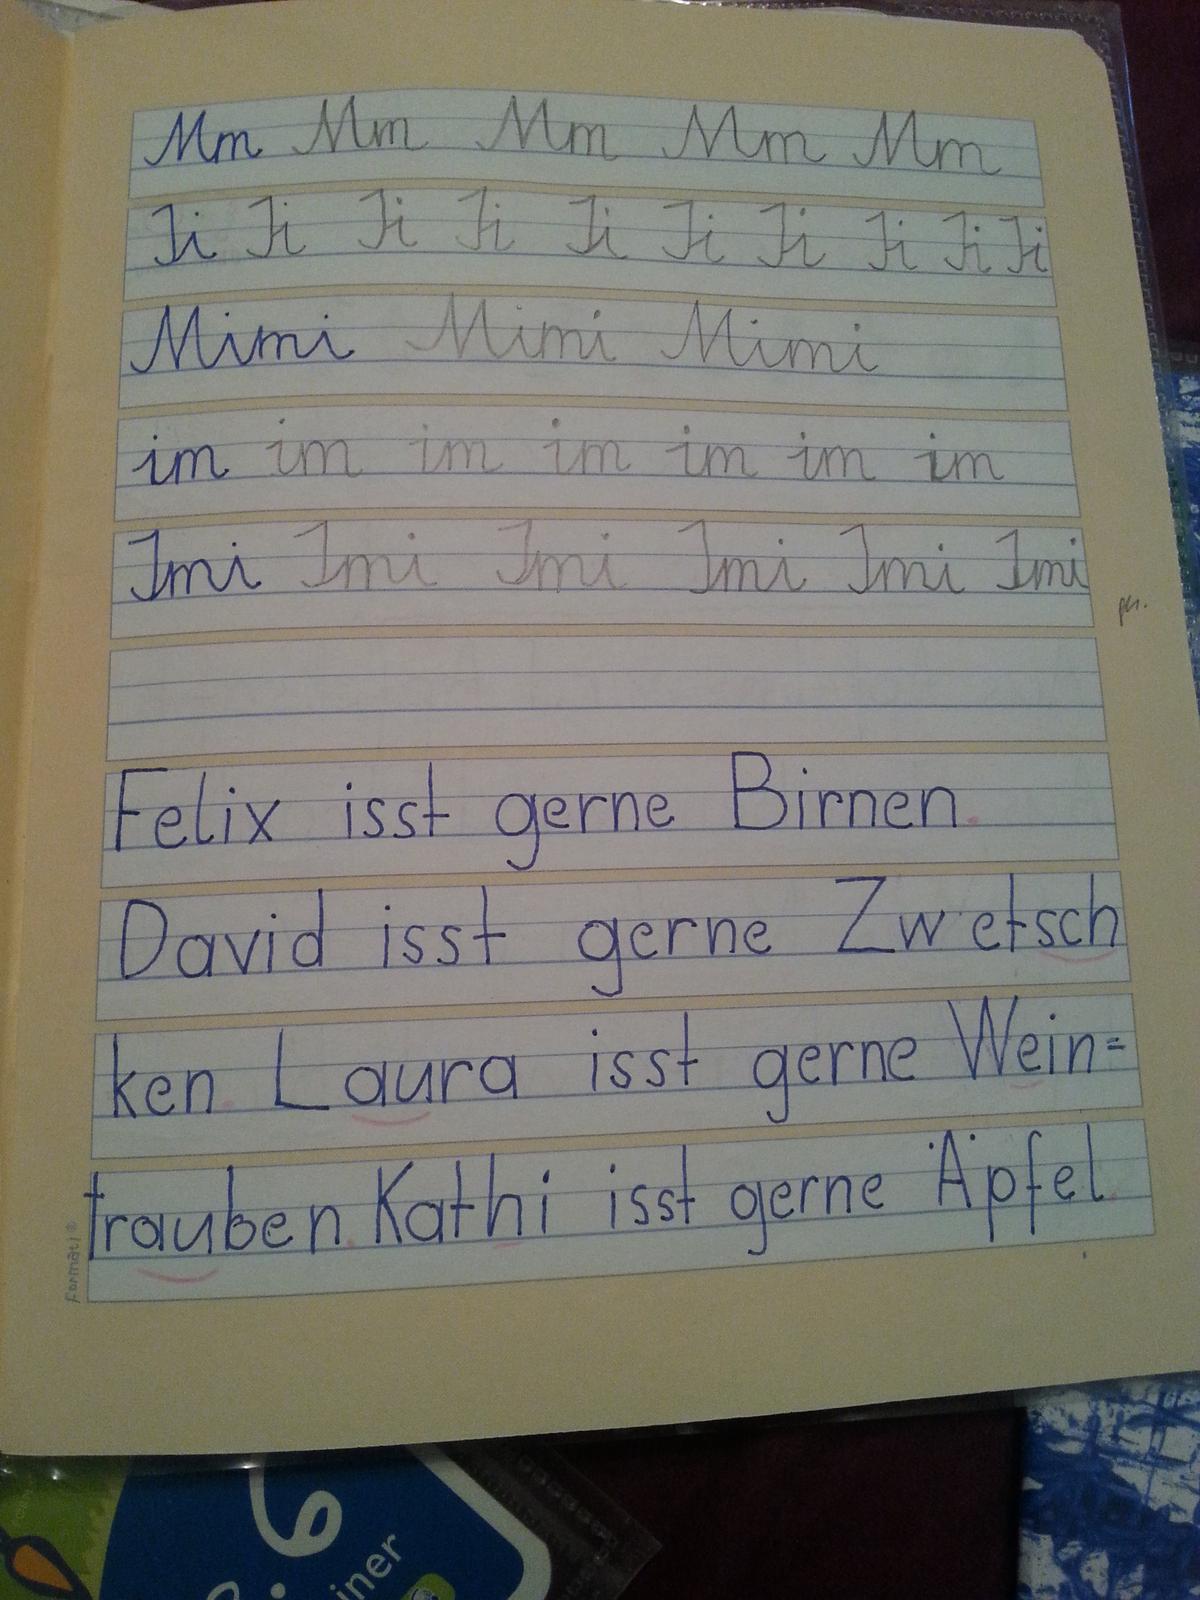 Mm Mm Mm Mm Mm
Ii Ii Ii Ii Ii Ii Ii Ii Ii Ii
Mimi Mimi Mimi
im im im im im im im
Imi Imi Imi Imi Imi Imi
Felix isst gerne Birnen.
David isst gerne Zwetsch
ken. Laura isst gerne Wein=
trauben. Kathi isst gerne Äpfel.
Formati®
iner